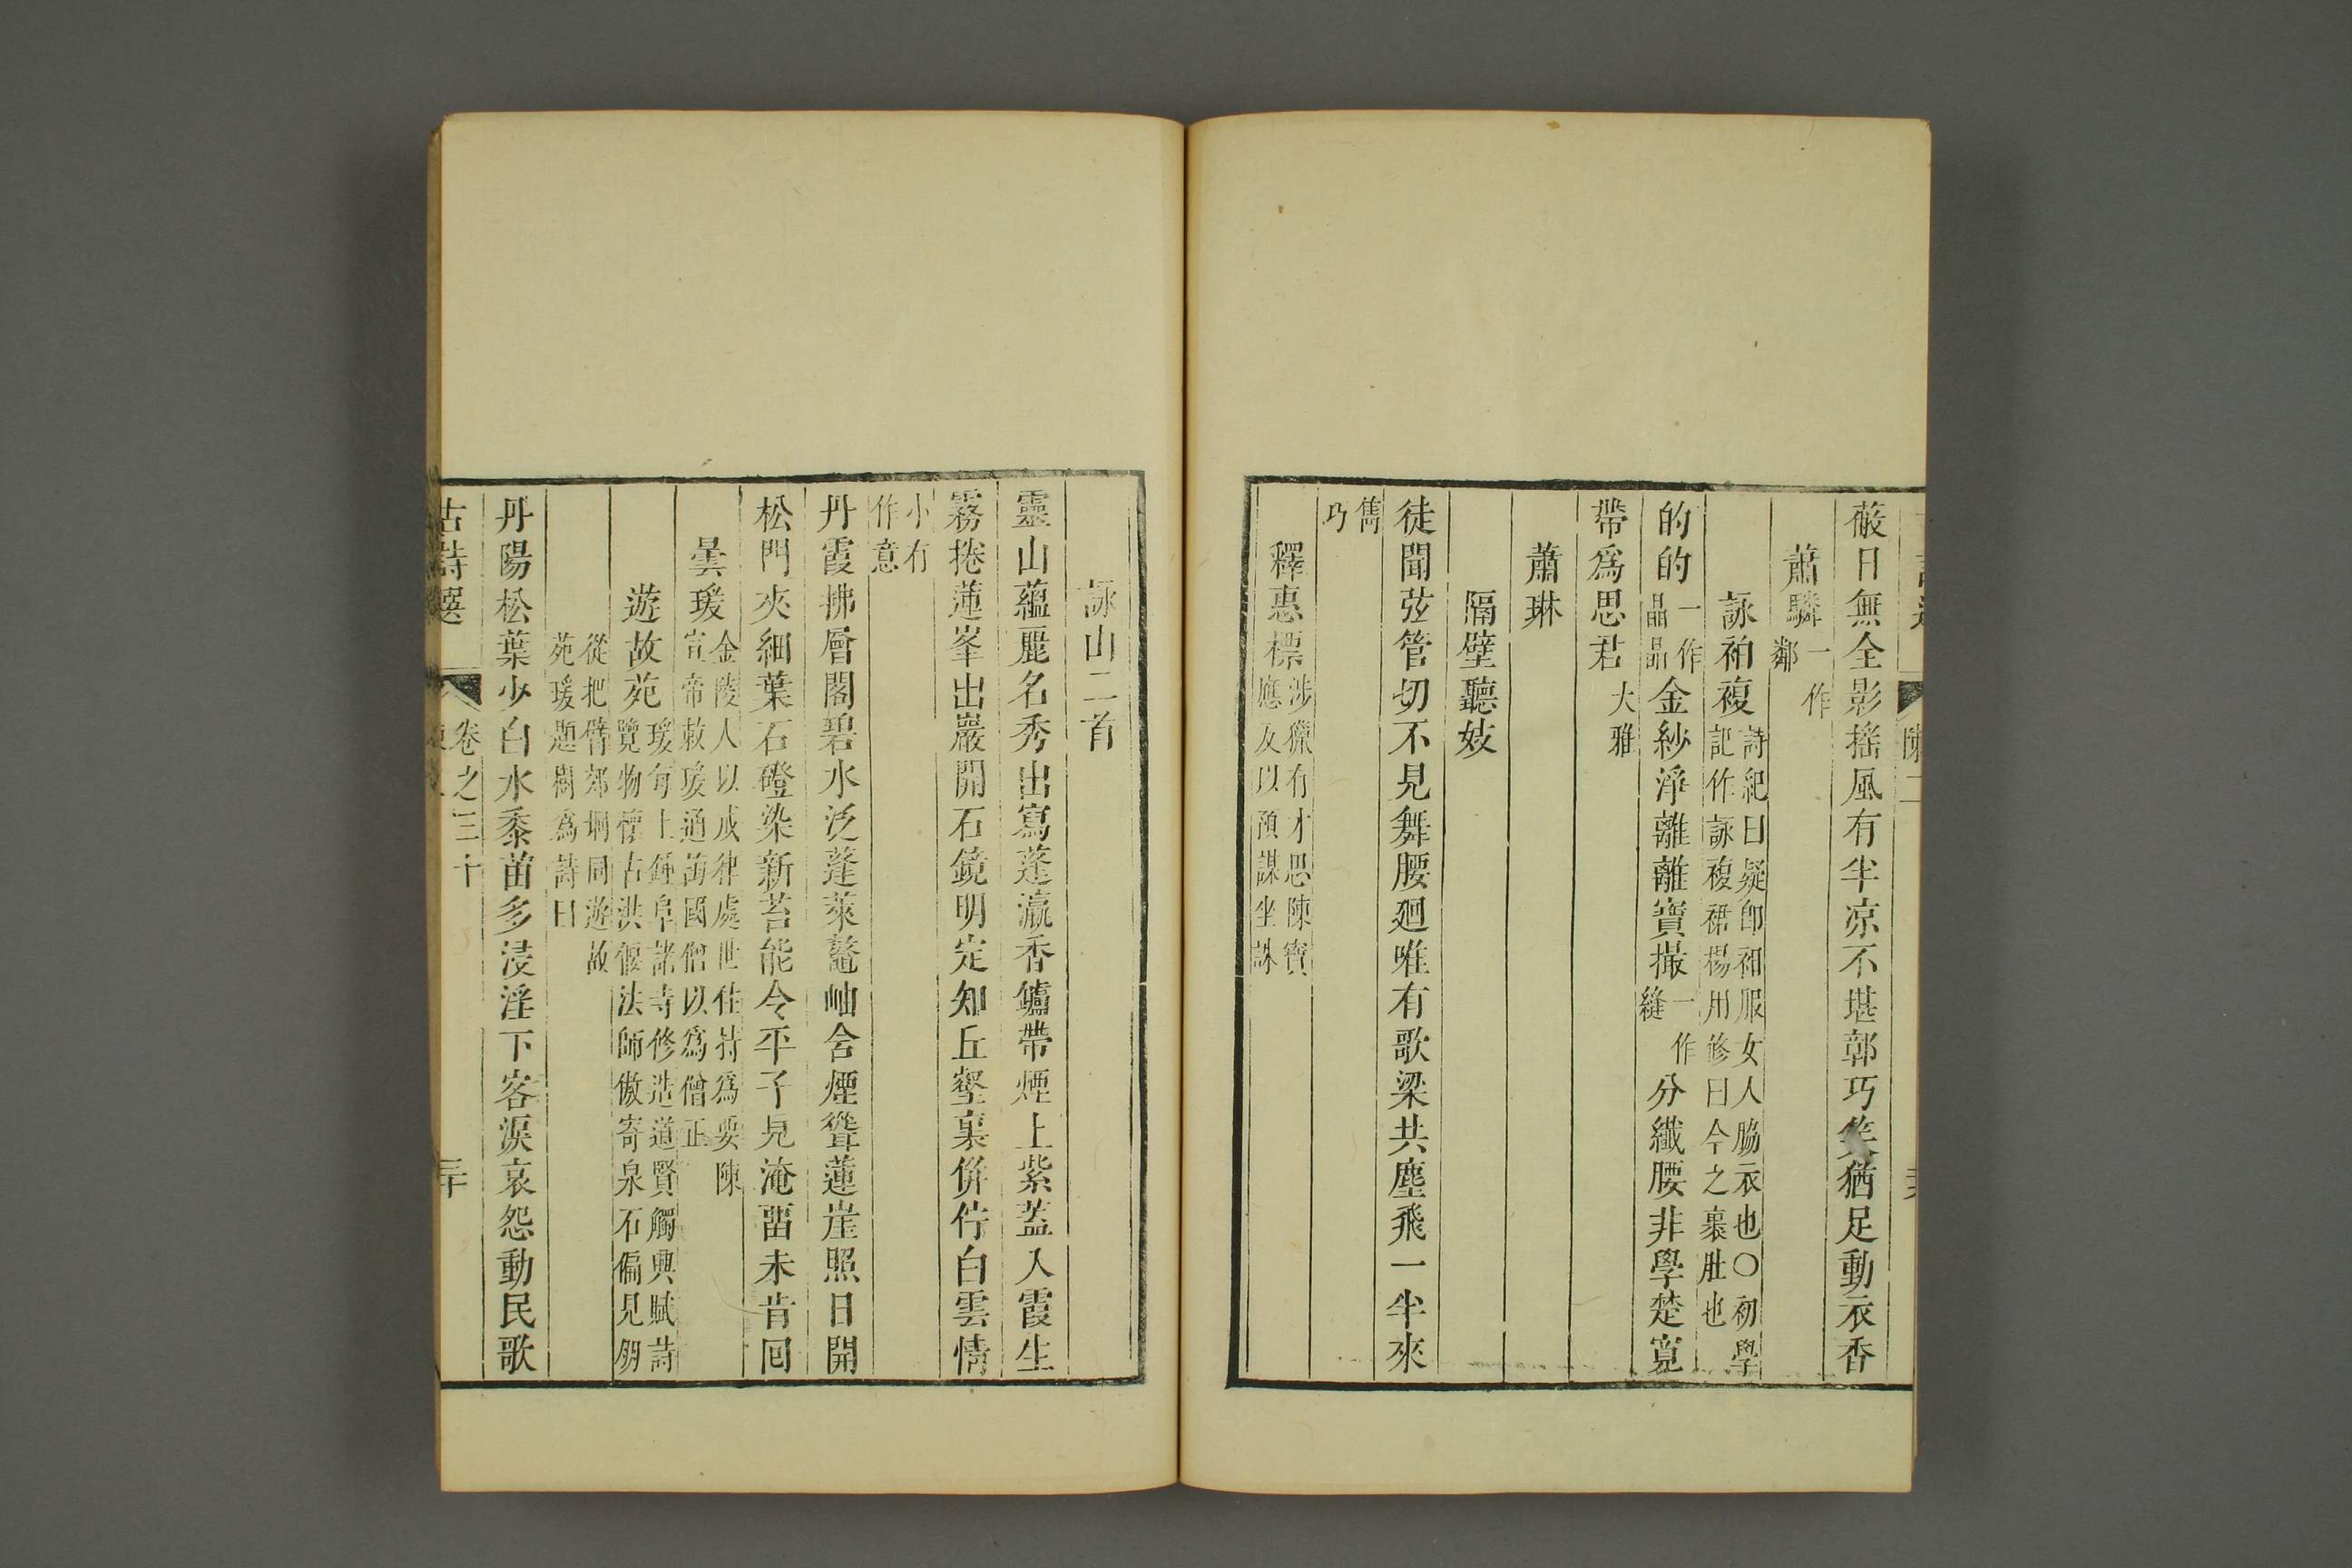 蔽日無全影搖風有半凉不堪鄣巧笑猶足動衣香
蕭驎一作鄰
詠袙複詩紀曰疑卽袙服女人脇衣也○初學記作詠複裙楊用修曰今之裹肚也
的的一作晶晶金紗淨離離寶撮一作縫分纖腰非學楚寛
帶爲思君大雅
蕭琳
隔壁聽妓
徒聞弦管切不見舞腰廻唯有歌梁共塵飛一半來
雋巧
釋惠標涉獵有才思陳寶應反以預謀坐誅
詠山二首
靈山蘊麗名秀出寫蓬瀛香鑪帶煙上紫蓋入霞生
霧捲蓮峯出巖開石鏡明定知丘壑裏併佇白雲情
小有作意
丹霞拂層閣碧水泛蓬萊鼇岫含煙聳蓮崖照日開
松門夾細葉石磴染新苔能令平子見淹畱未肯回
曇瑗金陵人以戒律處世住持爲要陳宣帝敕瑗通誨國僧以爲僧正
遊故苑瑗每上鍾阜諸寺修造道賢觸興賦詩覽物懷古洪偃法師傲寄泉石偏見朋
從把臂郊坰同遊故苑瑗題樹爲詩曰
丹陽松葉少白水黍苗多浸淫下客淚哀怨動民歌
古詩選 卷之三十 三十